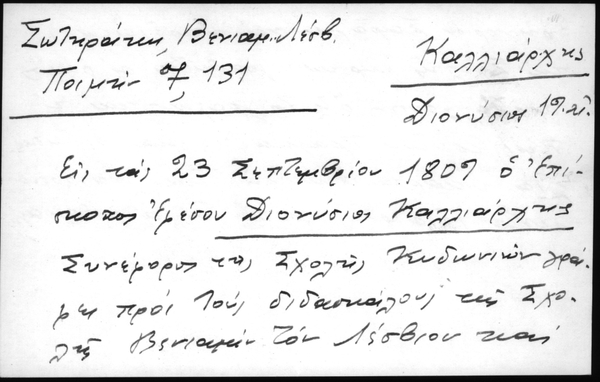 Σωτηράκη, Βενιαμ. Λέσβ.
Ποιμήν 131
Καλλιάρχης
Διονύσιος 19. αἰ.
Εἰς τάς 23 Σεπτεμβρίου 1807 ὁ Ἐπί-
σκοπος Ἐρέσου Διονύσιος Καλλιάρχης
Συνέφορος τῆς Σχολῆς Κυδωνιῶν γρά-
φει πρός τούς διδασκάλους τῆς Σχο-
λῆς Βενιαμίν τόν Λέσβιον καί